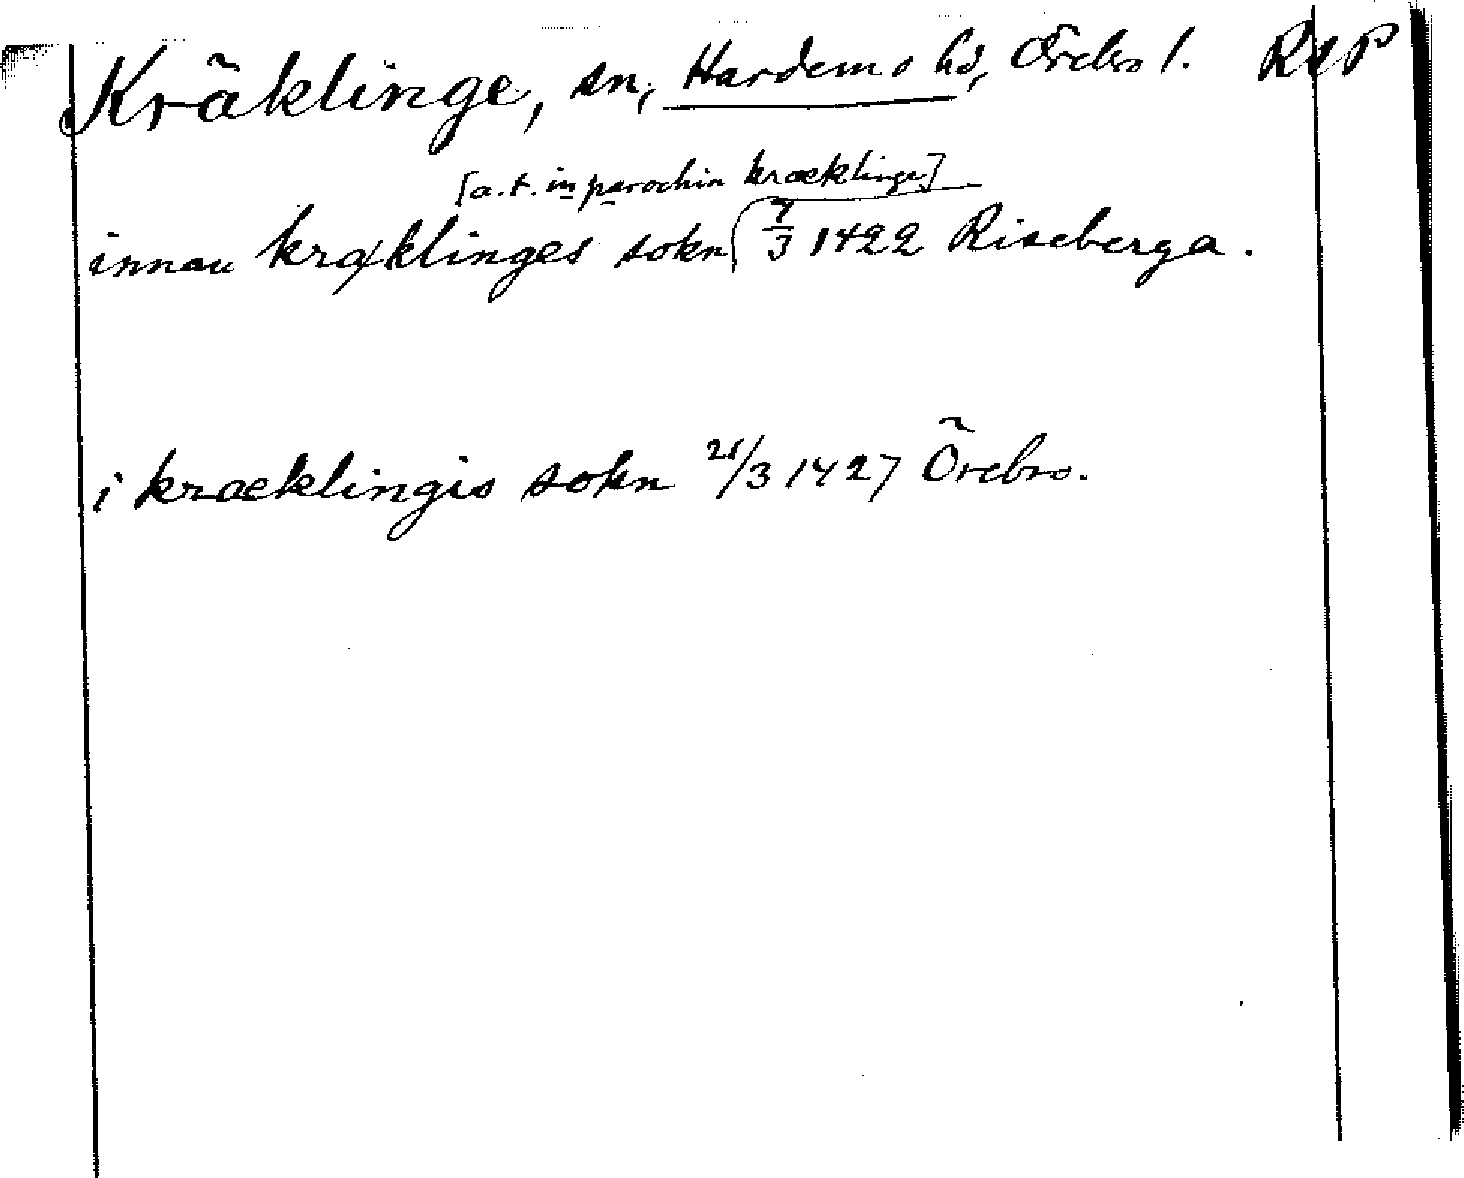 Kräklinge, sn, Hardemo hd, Örebro l. RAP
[a.t. in parochia kræklinge]
innan kræklinges sokn 7/3 1422 Riseberga.
i kræklingis sokn 21/3 1427 Örebro.